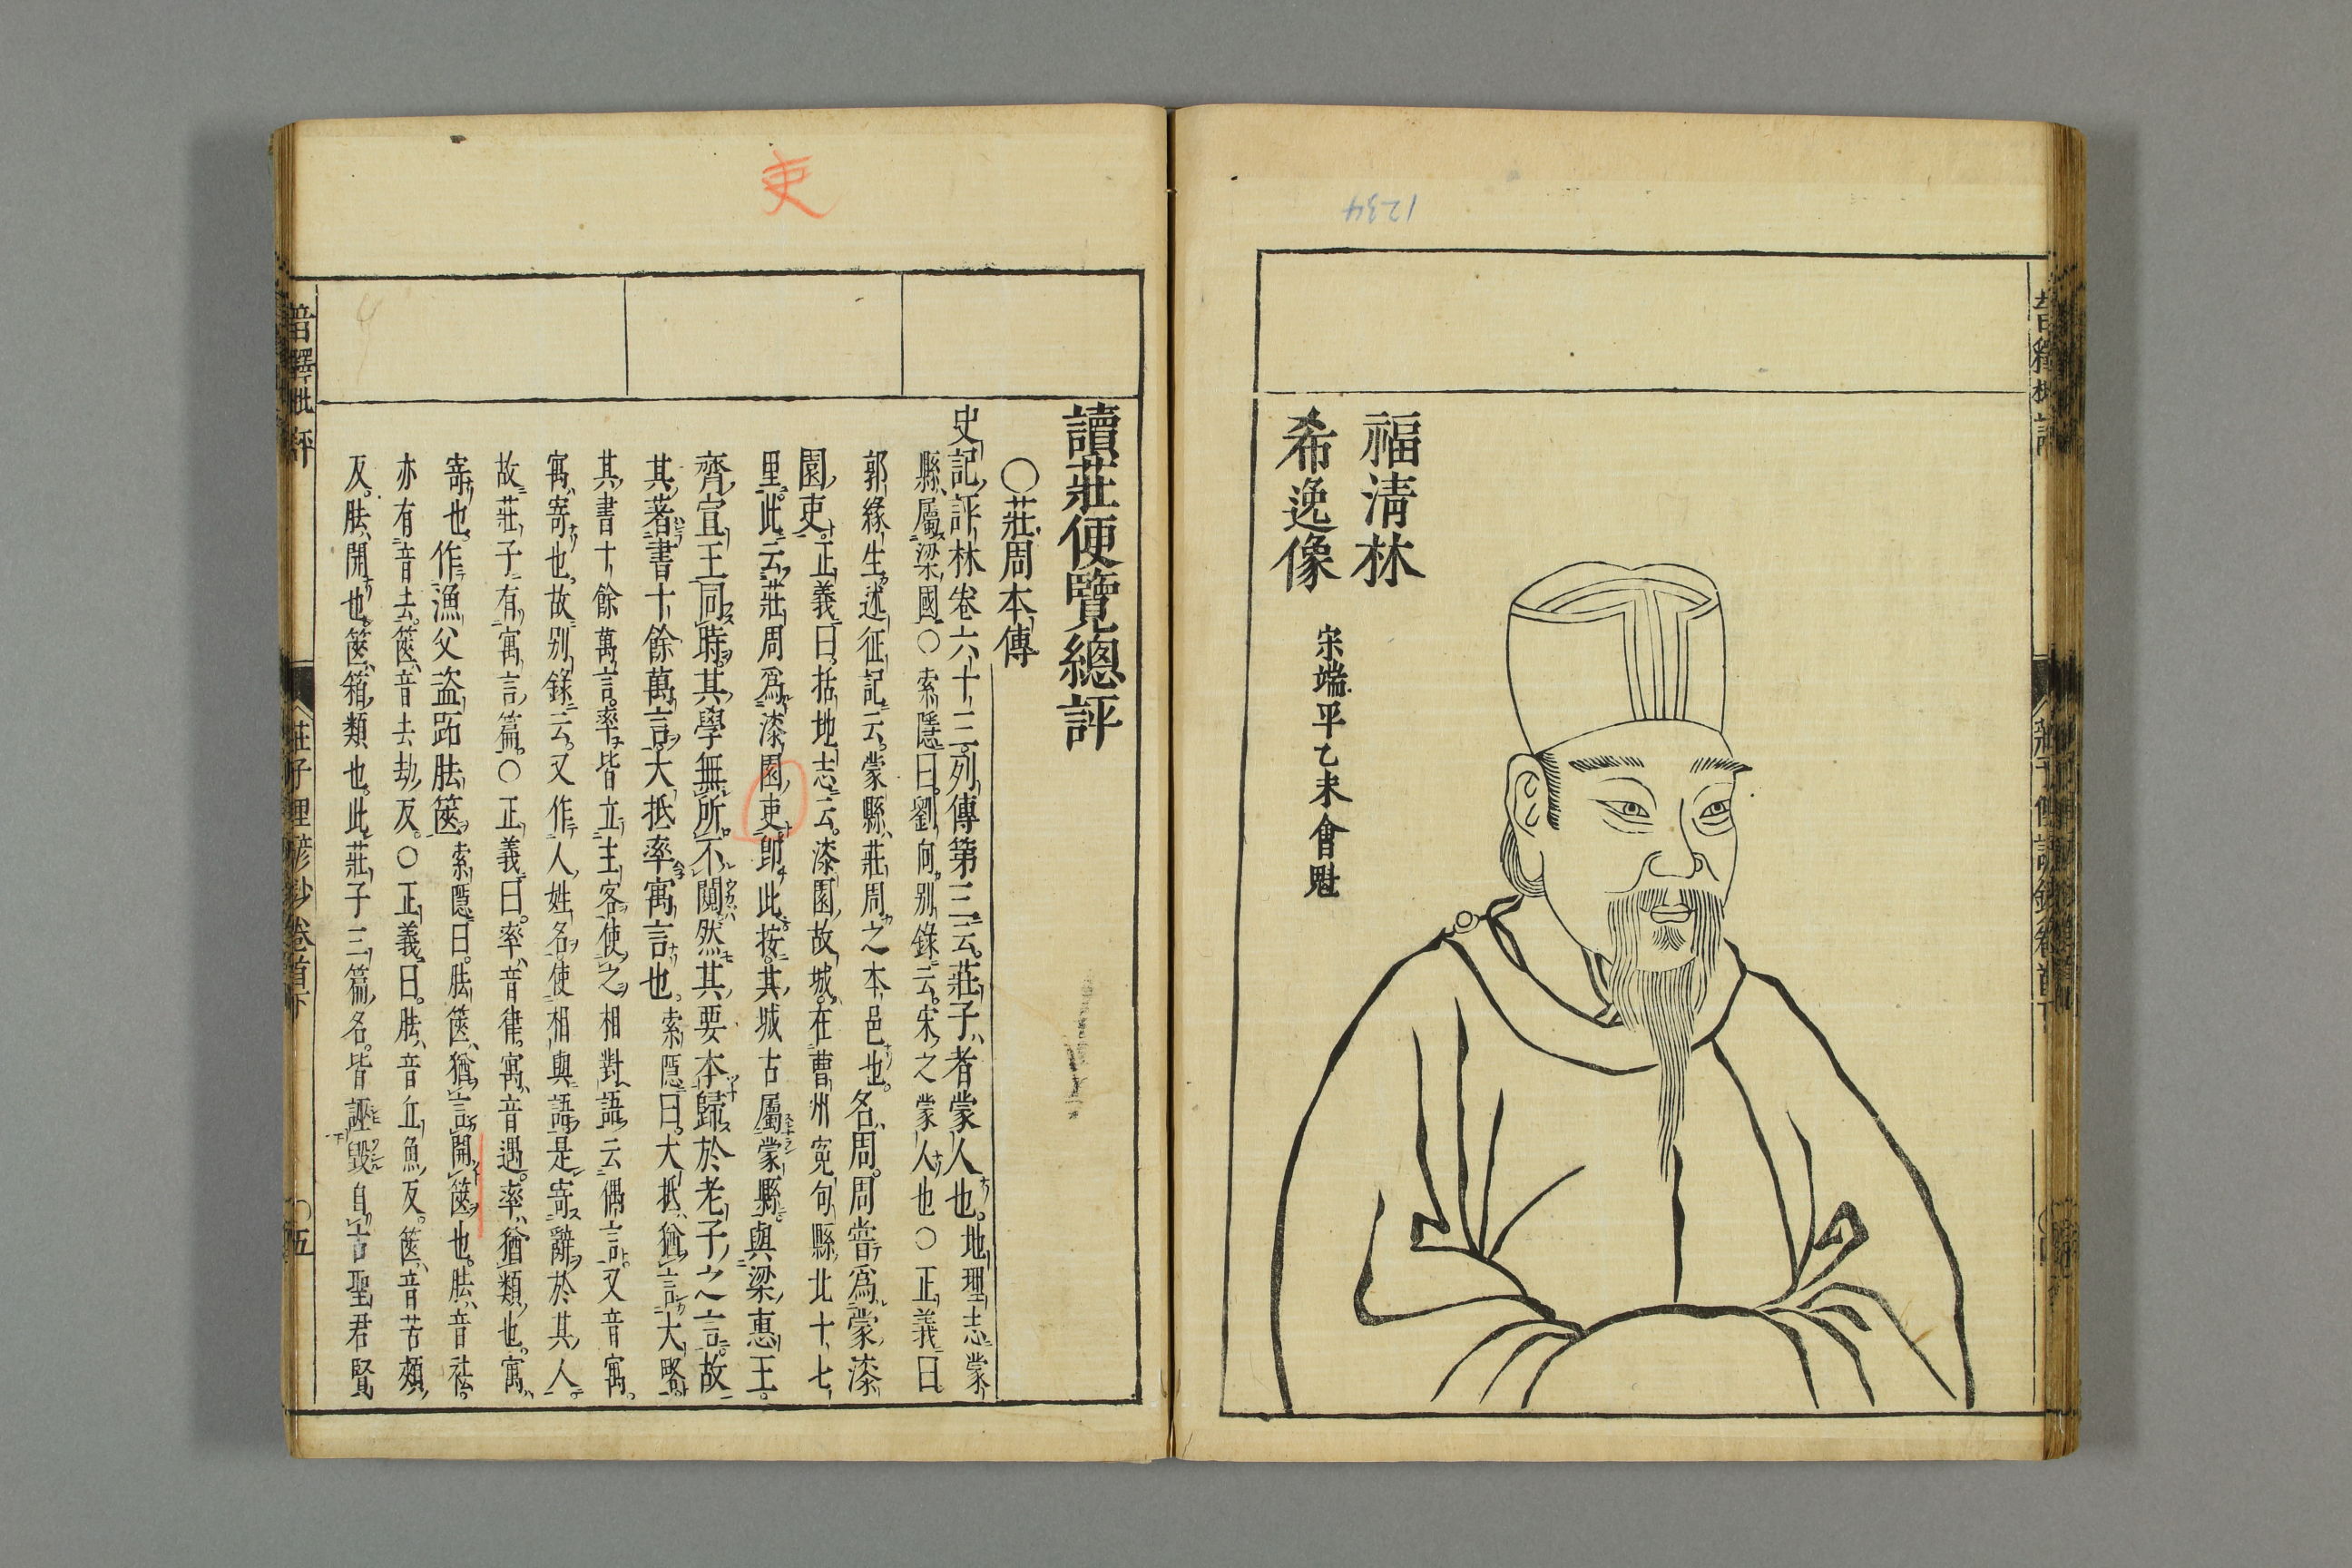 福清林
希逸像
宋端平乙未會魁
1234
吏
讀莊便覽總評
○莊周本傳
史記評林卷六十三列傳第三云莊子者蒙人也地理志蒙
縣屬梁國○索隱曰劉向別錄云宋之蒙人也○正義曰
郭緣生述征記云蒙縣莊周之本邑也名周周嘗爲蒙漆
園吏正義曰括地志云漆園故城在曹州冤句縣北十七
里此云莊周爲漆園吏卽此按其城古屬蒙縣與梁惠王
齊宣王同時其學無所不闚然其要本歸於老子之言故
其著書十餘萬言大抵率寓言也索隱曰大抵猶言大略
其書十餘萬言率皆立主客使之相對語云偶言又音寓
寓寄也故別錄云又作人姓名使相與語是寄辭於其人
故莊子有寓言篇○正義曰率音律寓音遇率猶類也寓
寄也作漁父盗跖胠篋索隱曰胠篋猶言開篋也胠音祛
亦有音去篋音去劫反○正義曰胠音丘魚反篋音苦頰
反胠開也篋箱類也此莊子三篇名皆誣毀自古聖君賢
音釋批評
莊子俚諺鈔卷首下
五